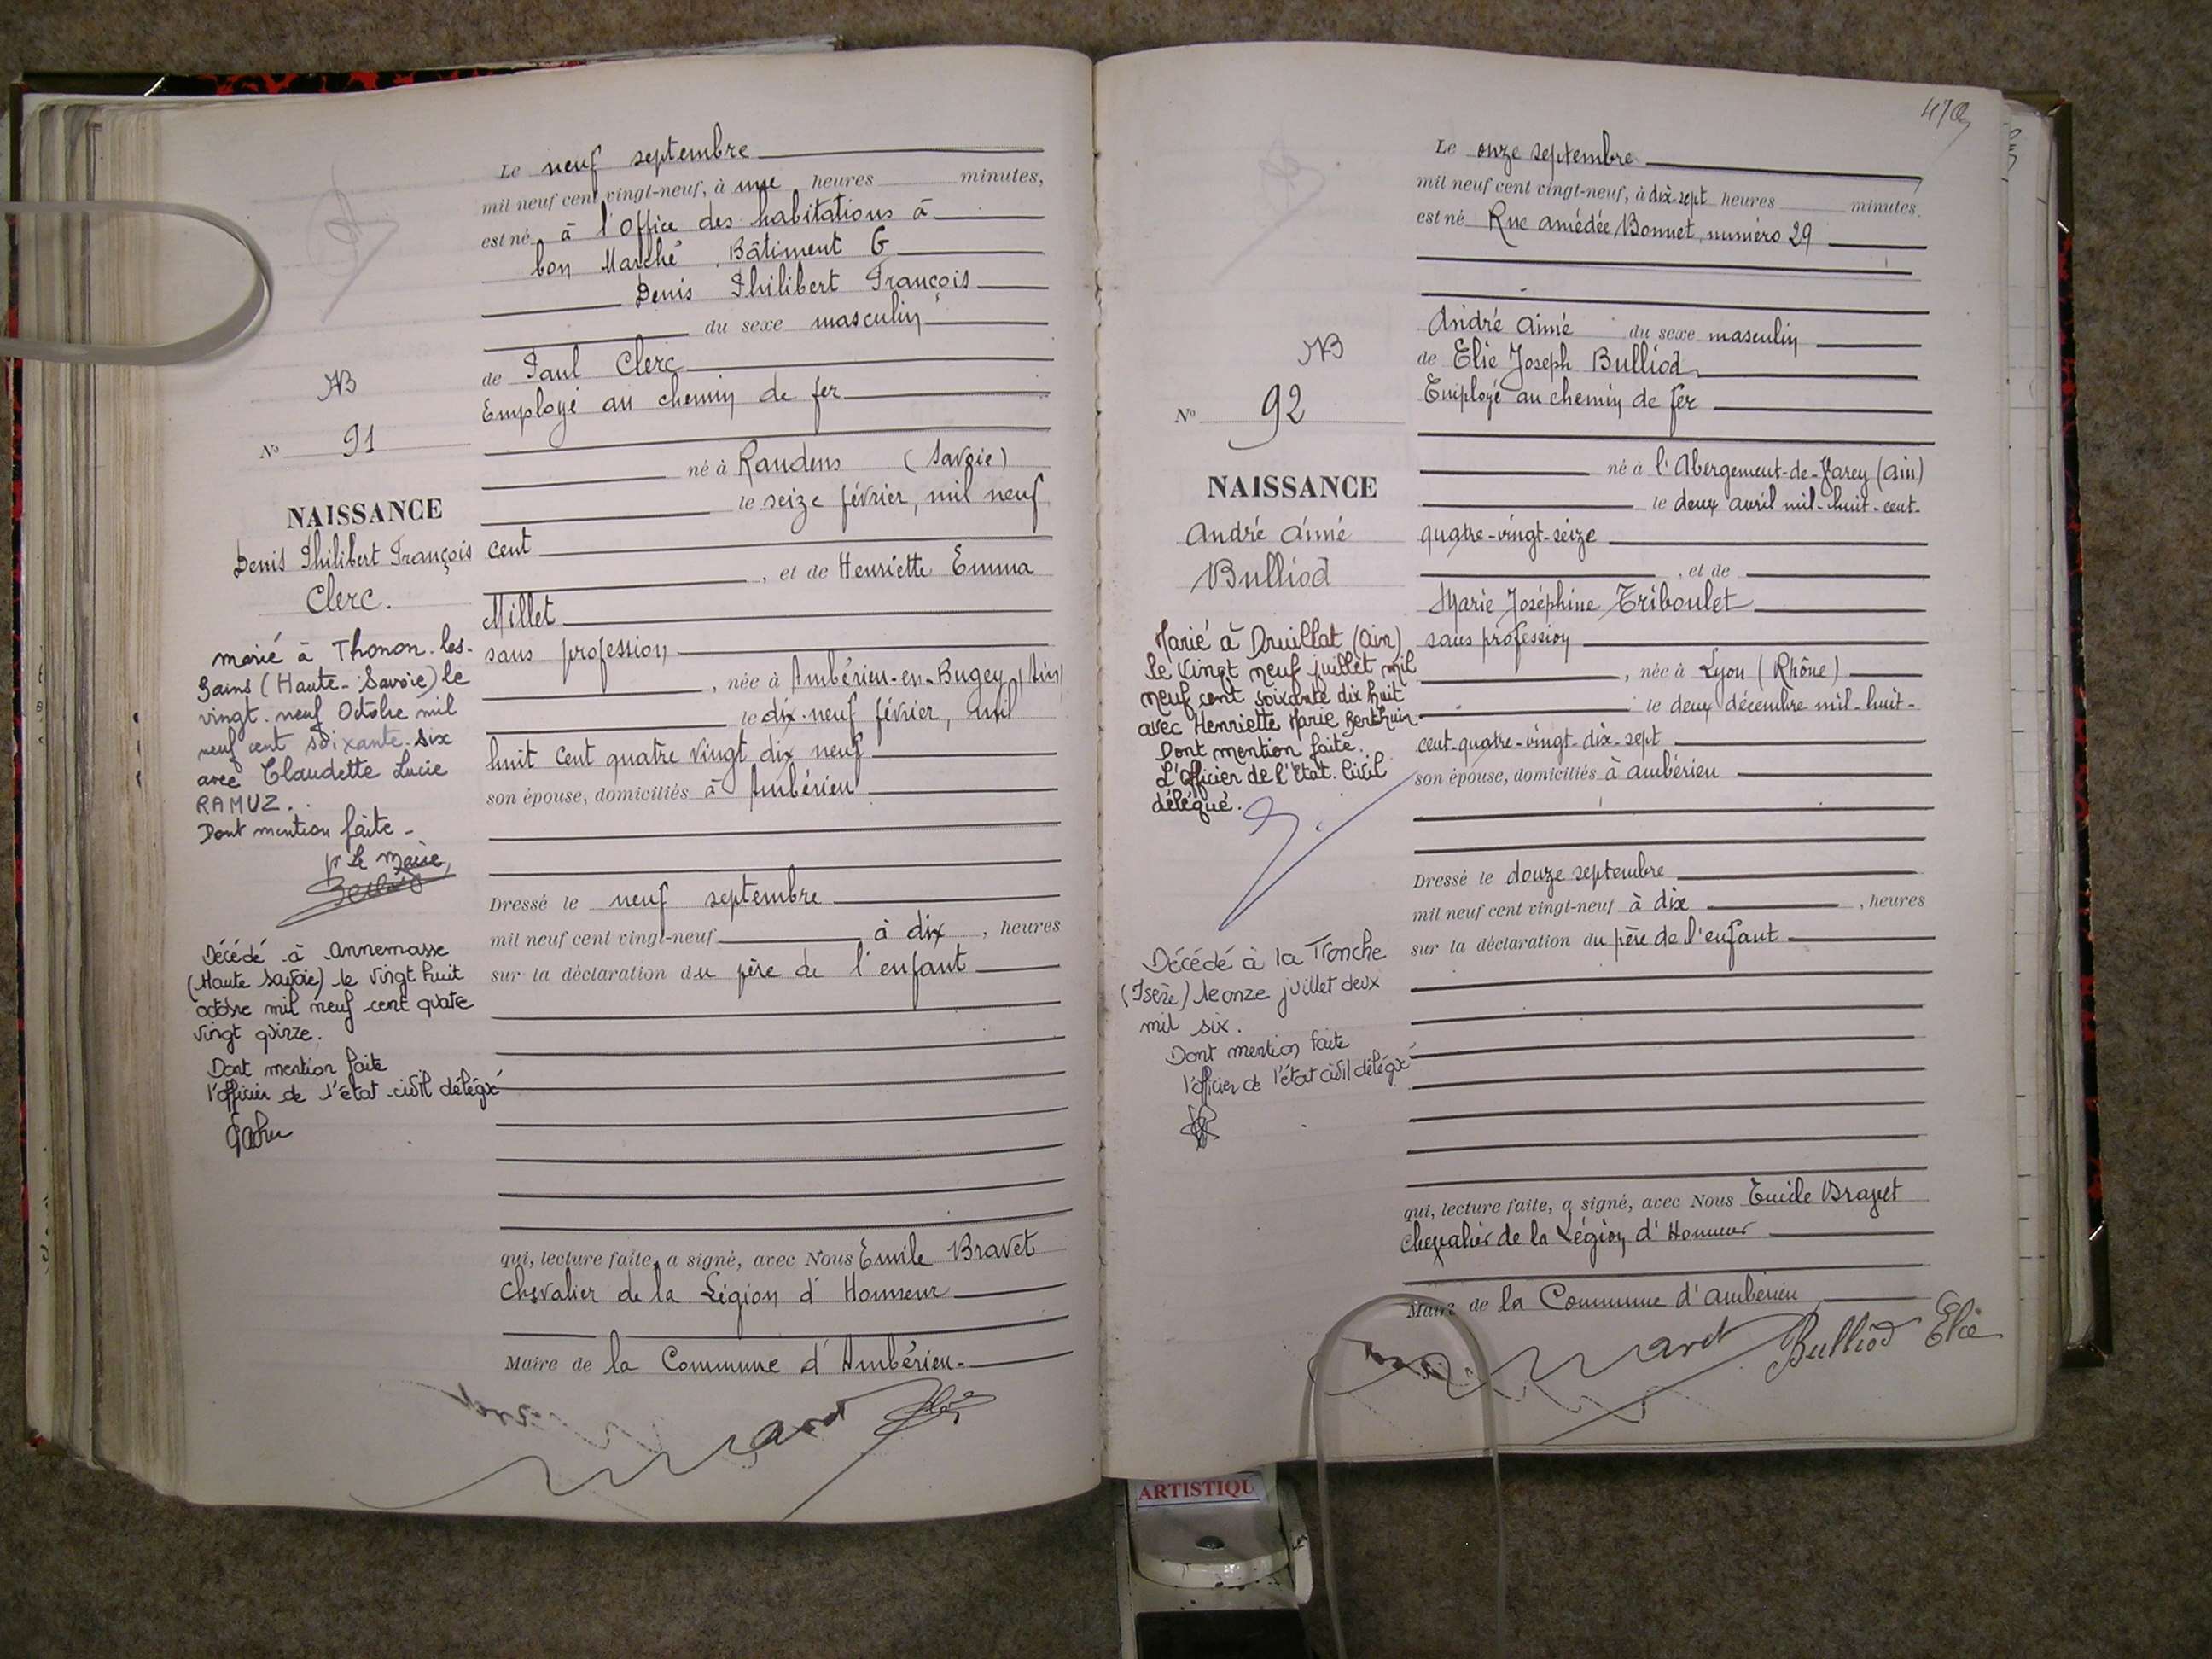 Le neuf septembre
mil neuf cent vingt-neuf, à une heures minutes,
est né à l'Office des habitations à
bon Marché Bâtiment G
Denis Philibert François
du sexe masculin
de Paul Clerc
Employé au chemin de fer
né à Randens (Savoie)
le seize février, mil neuf
cent
, et de Henriette Emma
Millet
sans profession
, née à Ambérieu-en-Bugey (Ain)
le dix-neuf février, mil
huit cent quatre vingt dix neuf
son épouse, domiciliés à Ambérieu
Dressé le neuf septembre
mil neuf cent vingt-neuf à dix, heures
sur la déclaration du père de l'enfant
qui, lecture faite, a signé, avec Nous Emile Bravet
Chevalier de la Légion d'Honneur
Maire de la Commune d'Ambérieu.
NB
No 91
NAISSANCE
Denis Philibert François
Clerc.
marié à Thonon-les-
Bains (Haute-Savoie) le
vingt-neuf Octobre mil
neuf cent soixante-six
avec Claudette Lucie
RAMUZ.
Dont mention faite-
pr Le Maire,
Décédé à Annemasse
(Haute Savoie) le vingt huit
octobre mil neuf cent quatre
vingt quinze.
Dont mention faite
l'officier de l'état-civil délégué
Le onze septembre
mil neuf cent vingt-neuf, à dix-sept heures minutes.
est né Rue amédée Bonnet, numéro 29
André aimé du sexe masculin
de Elie Joseph Bulliod
Employé au chemin de fer
né à l'Abergement-de-Varey (ain)
le deux avril mil-huit-cent-
quatre-vingt-seize
, et de
Marie Joséphine Triboulet
sans profession
, née à Lyon (Rhône)
le deux décembre mil-huit-
cent-quatre-vingt-dix-sept
son épouse, domiciliés à ambérieu
Dressé le douze septembre
mil neuf cent vingt-neuf à dix, heures
sur la déclaration du père de l'enfant
qui, lecture faite, a signé, avec Nous Emile Bravet
Chevalier de la Légion d'Honneur
Maire de la Commune d'ambérieu
Bulliod Elie
NB
No 92
NAISSANCE
André aimé
Bulliod
Marié à Druillat (Ain)
le vingt neuf juillet mil
neuf cent soixante dix huit
avec Henriette Marie Berthuin.
Dont mention faite.
L'Officier de l'Etat. Civil
délégué.
Décédé à la Tronche
(Isère) le onze juillet deux
mil six.
Dont mention faite
l'officier de l'état civil délégué
ARTISTIQU